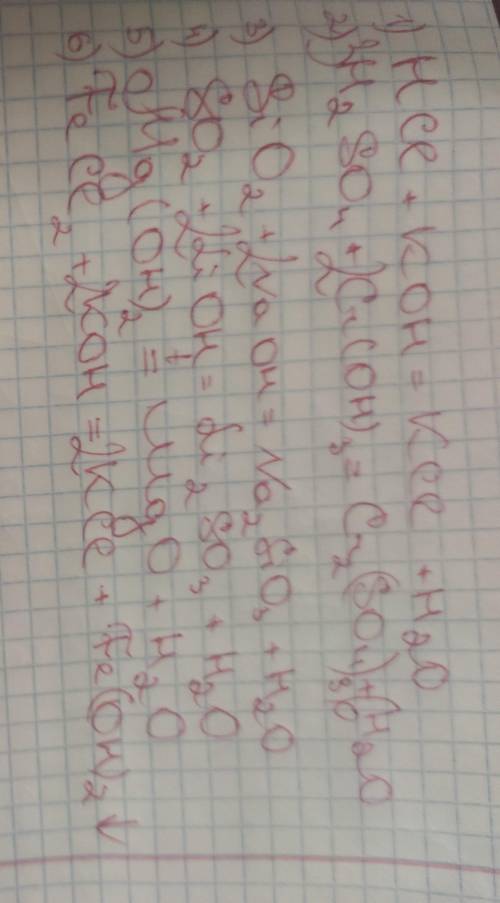 1) HCl + KOH = KCl + H2O
2) 3H2SO4 + 2Cr(OH)3 = Cr2(SO4)3 + 6H2O
3) SiO2 + 2NaOH = Na2SiO3 + H2O
4) SO2 + 2LiOH = Li2SO3 + H2O
5) Mg(OH)2 =t MgO + H2O
6) FeCl2 + 2KOH = 2KCl + Fe(OH)2 ↓